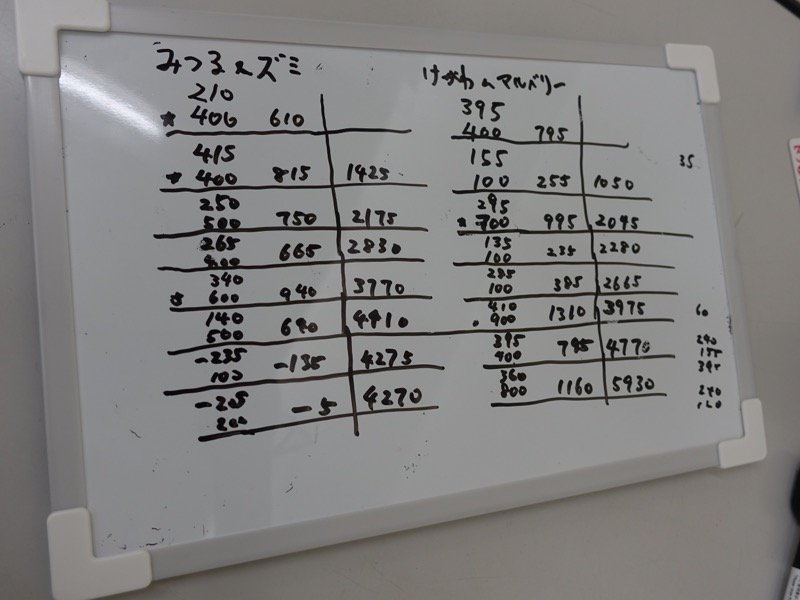 みつる&ズミ
210
* 400 610
415
* 400 815 1425
250
500 750 2175
265
400 665 2830
340
* 600 940 3770
140
500 640 4410
-235
100 -135 4275
-205
200 -5 4270
けがわ&マルベリー
395
400 795
155
100 255 1050
295
* 700 995 2045
135
100 235 2280
285
100 385 2665
410
. 900 1310 3975
395
400 795 4770
360
800 1160 5930
35
60
240
155
395
240